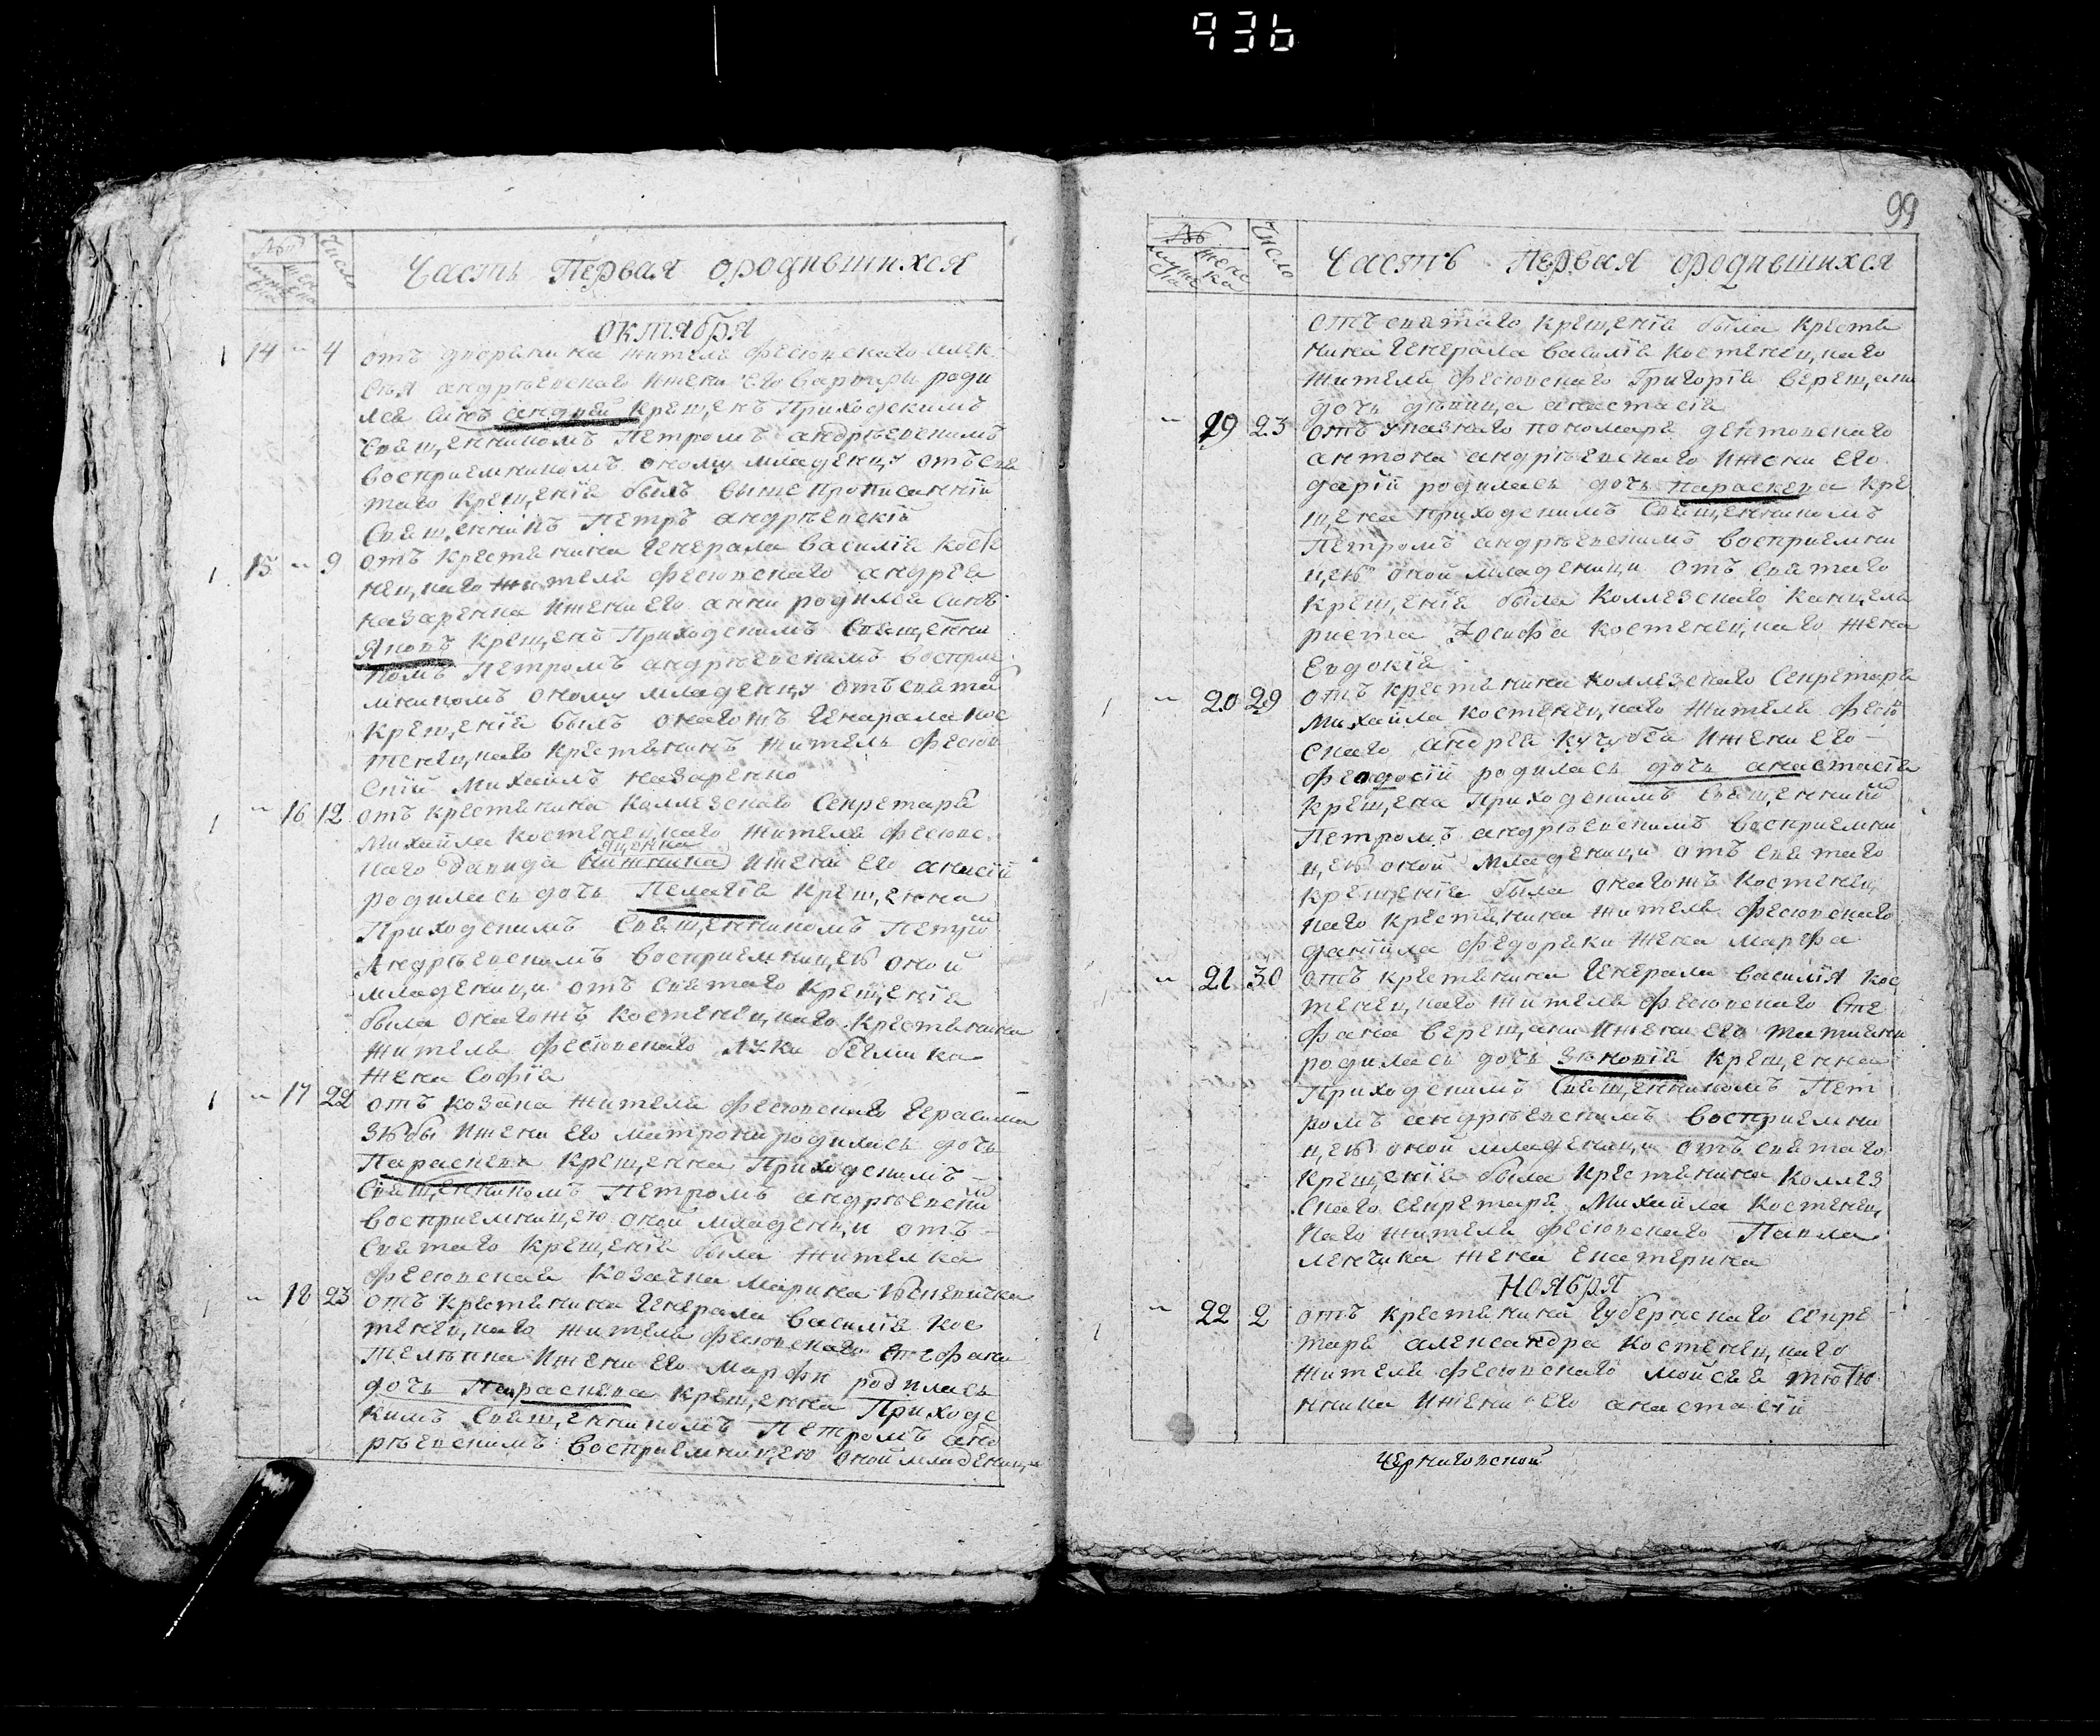 936
№
мужеска
женска
Число
Часть Первая ородившихся
октября
1 14 " 4 отъ дворянина жителя фесювскаго алек
сѣя андрѣевскаго ижени его варвары роди
лся синъ андрей крещенъ Приходскимъ
Священникомъ Петромъ андрѣевскимъ
восприемникомъ оному младенцу отъ свя
таго крещенія былъ вышепрописанній
Священникъ Петръ андрѣевскій
1 15 " 9 отъ крестянина Генерала василія косте
нецкаго жителя фесювскаго андрея
назаренка ижени его анни родился синъ
Яковъ крещенъ Приходскимъ Священни
комъ Петромъ андрѣевскимъ восприе
мникомъ оному младенцу отъ святаго
крещенія былъ онагожъ Генарала кос
тенецкаго крестянинъ житель фесюв
скій Михаилъ назаренко
1 " 16 12 отъ крестянина коллезскаго Секретаря
Михайла костенецкаго жителя фесювс
каго давида ижени его анисіи
родилась дочь Пелагія крещенна
Приходскимъ Священникомъ Петромъ
Андрѣевскимъ восприемницею оной
младеници отъ святаго крещенія
была онагожъ костенецкаго крестянина
жителя фесювскаго луки белика
жена Софія
1 " 17 22 отъ козака жителя фесювскаго Герасима
зюбы ижени его матрони родилась дочь
Параскева крещенна Приходскимъ
Священникомъ Петромъ андрѣевским
восприемницею оной младеници отъ
Святаго крещенія была жителка
фесювская козачка Марина
" 18 23 отъ крестянина Генерала василія кос
тенецкаго жителя фесювскаго стефана
ижени его марфи родилась
дочь Параскева крещенна Приходс
кимъ Священникомъ Петромъ анд
рѣевскимъ восприемницею оной младеници
99
№
мужеска
женска
Число
Часть Первая ородившихся
отъ святаго крещенія была крестя
нина Генерала василія костенецкаго
жителя фесювскаго Григорія верещаки
дочь дѣвица анастасія
" 19 23 отъ указнаго пономаря дехтовскаго
антона андрѣевскаго ижени его
даріи родилась дочь параскева кре
щена приходскимъ Священникомъ
Петромъ андрѣевскимъ восприемни
цею оной младеници отъ святаго
крещенія была коллезскаго канцеля
риста Іосифа костенецкаго жена
Евдокія
1 " 20 29 отъ крестянина коллезскаго Секретаря
Михайла костенецкаго жителя фесю
скаго андрея кучуба ижени его
феодосіи родилась дочь анастасія
крещена Приходскимъ Священником
Петромъ андрѣевскимъ восприемни
цею оной младеници отъ святаго
крещенія была онагожъ костенец
каго крестянина жителя фесювскаго
даніила федоряки жена марфа
" 21 30 отъ крестянина Генерала василія кос
тенецкаго жителя фесювскаго сте
фана верещаки ижени его татияни
родилась дочь зѣновія крещенна
Приходскимъ Священникомъ Пет
ромъ андрѣевскимъ восприемни
цею оной младеници отъ святаго
крещенія была крестянина коллез
скаго секретаря Михайла костенец
каго жителя фесювскаго Павла
ленчика жена екатерина
Ноября
1 " 22 2 отъ крестянина Губернскаго секре
таря александра костенецкаго
жителя фесювскаго мойсея тютю
нника ижени его анастасіи
Черниговской